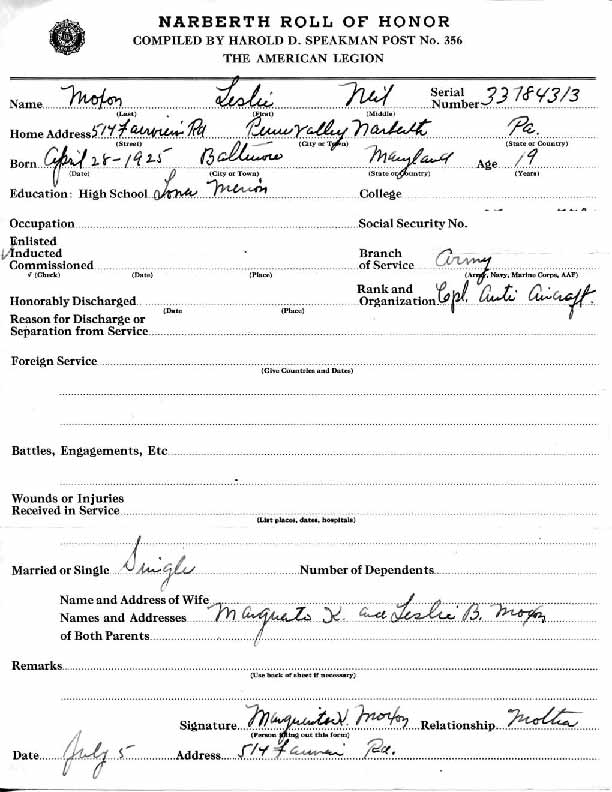 NARBERTH ROLL OF HONOR
COMPILED BY HAROLD D. SPEAKMAN POST No. 356
THE AMERICAN LEGION
Name Moxon Leslie Neil Serial Number 33784313
(Last) (First) (Middle)
Home Address 514 Fairview Rd Penn Valley Narberth Pa.
(Street) (City or Town) (State or Country)
Born April 28-1925 Baltimore Maryland Age 19
(Date) (City or Town) (State or Country) (Years)
Education: High School Lower Merion College
Occupation Social Security No.
Enlisted
√ Inducted Branch
Commissioned of Service Army
√ (Check) (Date) (Place) (Army, Navy, Marine Corps, AAF)
Rank and
Honorably Discharged Organization Cpl. Anti Aircraft.
(Date (Place)
Reason for Discharge or
Separation from Service
Foreign Service
(Give Countries and Dates)
Battles, Engagements, Etc
Wounds or Injuries
Received in Service
(List places, dates, hospitals)
Married or Single Single Number of Dependents
Name and Address of Wife
Names and Addresses Marguerite K. and Leslie B. Moxon
of Both Parents
Remarks
(Use back of sheet if necessary)
Signature Marguerite K. Moxon Relationship Mother
(Person filling out this form)
Date July 5 Address 514 Fairview Rd.